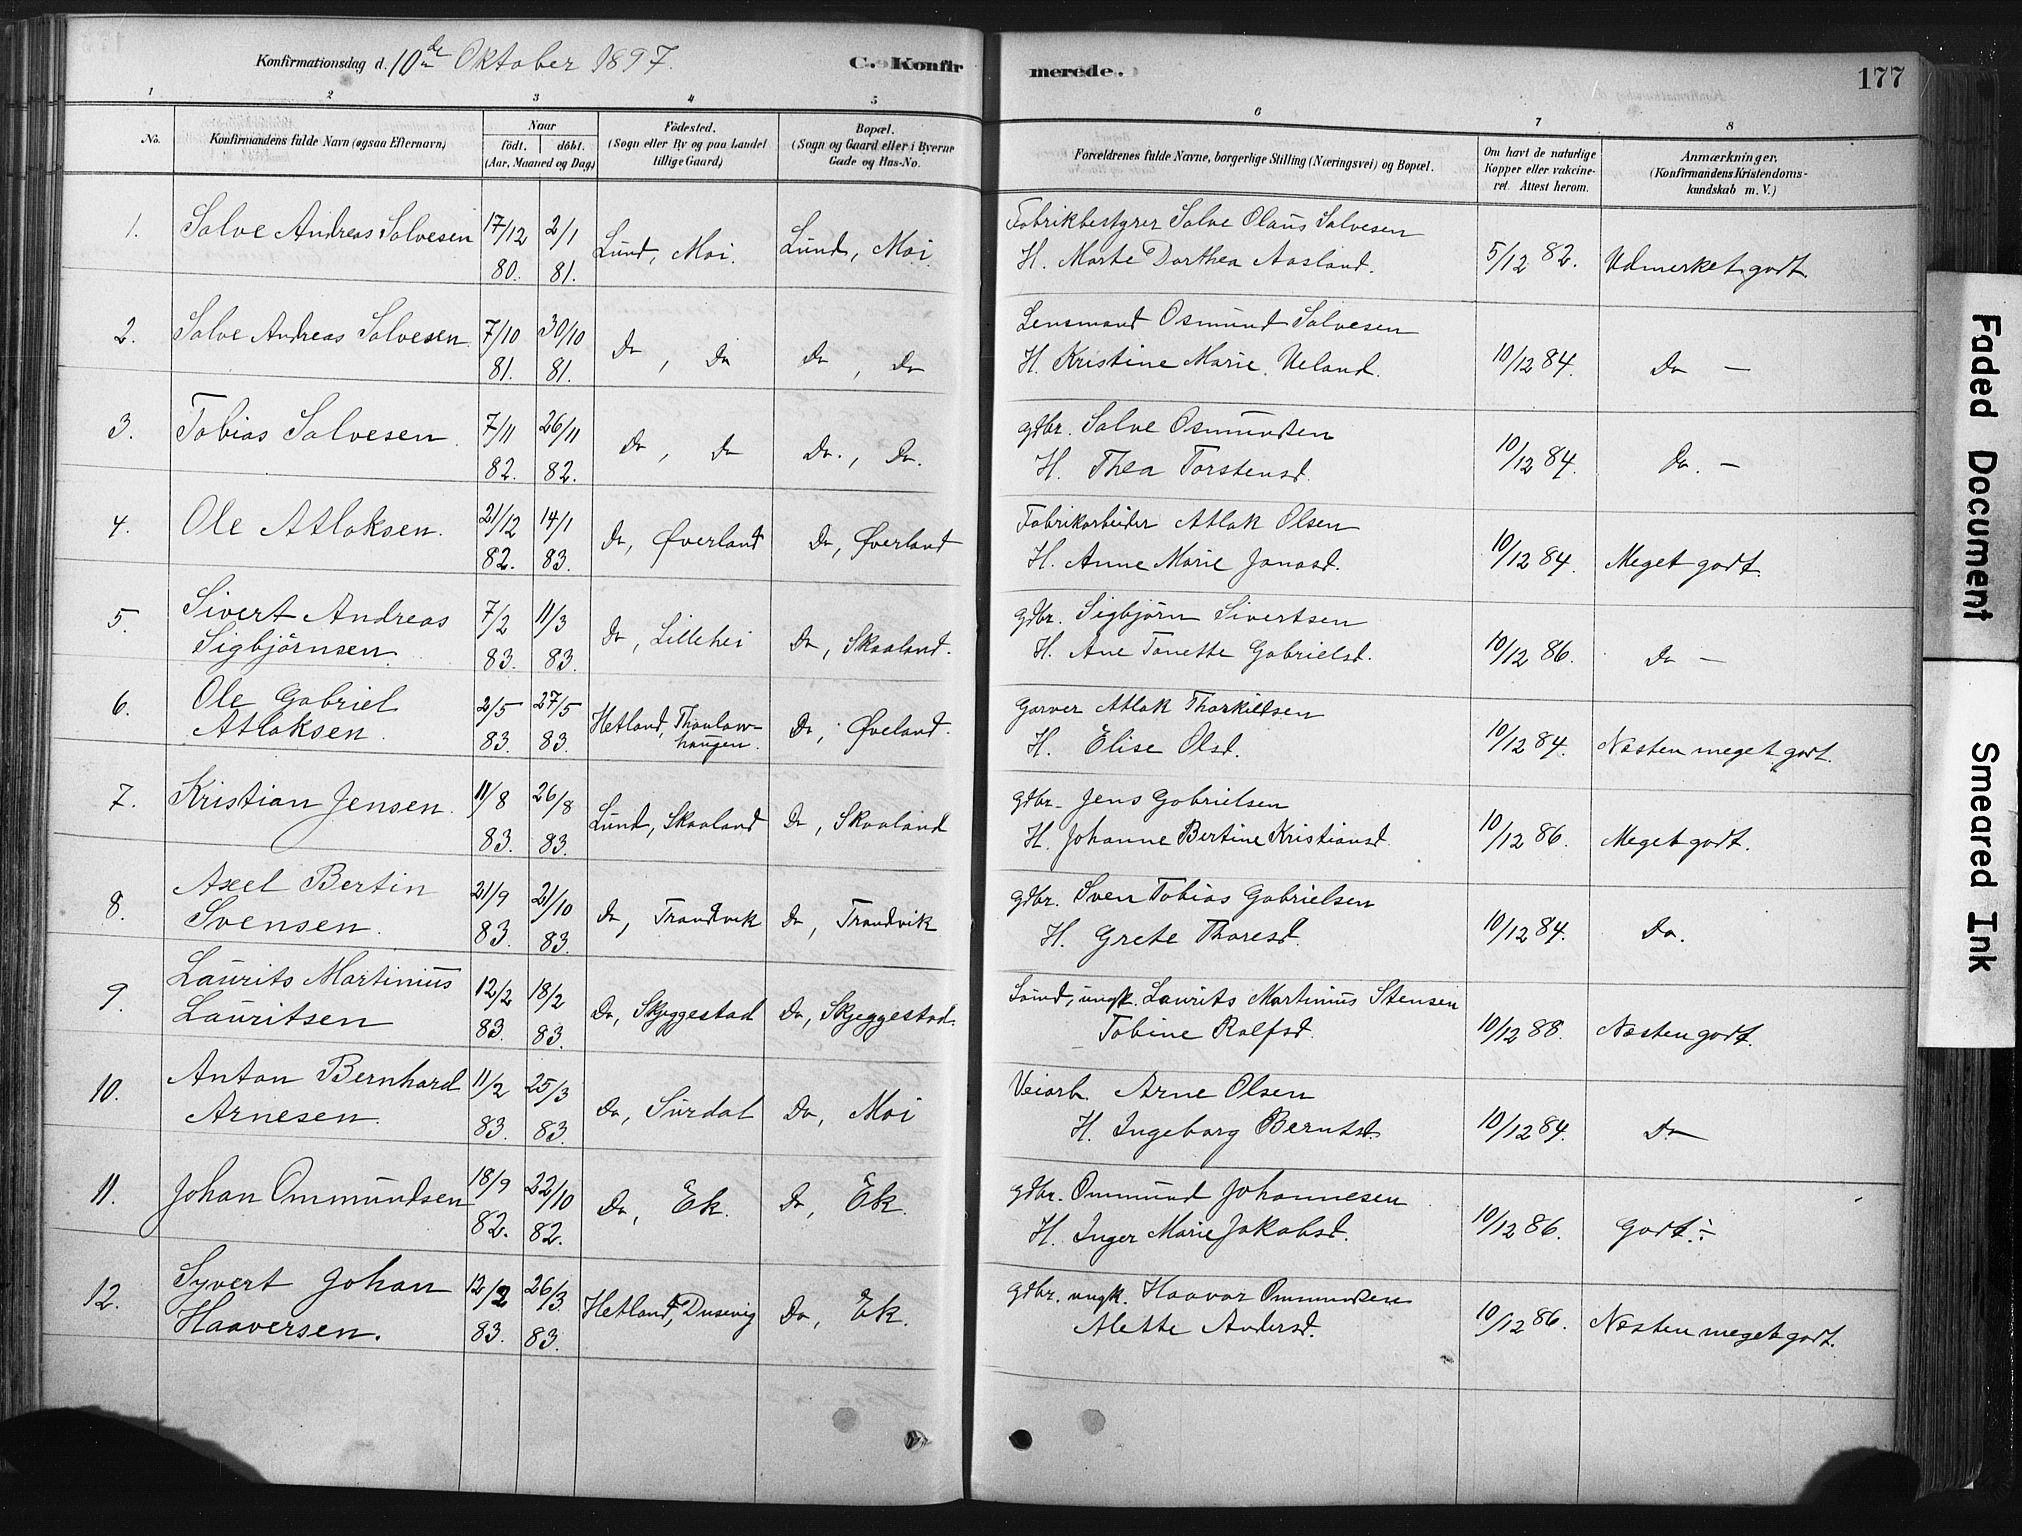 Konfirmationsdag d. 10de Oktober 1897.
C. Konfirmerede.
177
1 2 3 4 5 6 7 8
No.
Konfirmandens fulde Navn (ogsaa Efternavn)
Naar
födt. döbt.
(Aar, Maaned og Dag)
Födested.
(Sogn eller By og paa Landet
tillige Gaard)
Bopæl.
(Sogn og Gaard eller i Byerne
Gade og Hus-No.
Forældrenes fulde Navne, borgerlige Stilling (Næringsvei) og Bopæl.
Om havt de naturlige
Kopper eller vakcine-
ret. Attest herom.
Anmærkninger.
(Konfirmandens Kristendoms-
kundskab m. V.)
1. Salve Andreas Salvesen 17/12 80. 2/1 81. Lund, Moi. Lund, Moi
Fabrikbestyrer Salve Olaus Salvesen
H. Marte Dorthea Aasland. 5/12 82. Udmerket godt
2. Salve Andreas Salvesen 7/10 81. 30/10 81. Do, Do Do, Do
Lensmand Osmund Salvesen
H. Kristine Marie Ueland. 10/12 84. Do —
3. Tobias Salvesen. 7/11 82. 26/11 82. Do, Do Do., Do.
gdbr. Salve Osmundsen
H. Thea Torstensd. 10/12 84. Do. —
4. Ole Atlaksen. 21/12 82. 14/1 83. Do, Øverland Do, Øverland
Fabrikarbeider Atlak Olsen
H. Anne Marie Jonasd. 10/12 84. Meget godt.
5. Sivert Andreas
Sigbjörnsen. 7/2 83. 11/3 83. Do, Lillehei Do, Skaaland.
gdbr. Sigbjörn Sivertsen
H. Ane Tonette Gabrielsd. 10/12 86. Do —
6. Ole Gabriel
Atlaksen. 2/5 83. 27/5 83. Hetland, Thaulow-
haugen. Do, Øveland.
Garver Atlak Thorkildsen
H. Elise Olsd. 10/12 84. Næsten meget godt.
7. Kristian Jensen. 11/8 83. 26/8 83. Lund, Skaaland Do, Skaaland
gdbr. Jens Gabrielsen
H. Johanne Bertine Kristiansd. 10/12 86. Meget godt.
8. Axel Bertin
Svensen. 21/9 83. 21/10 83. Do, Trandvik Do, Trandvik
gdbr. Sven Tobias Gabrielsen
H. Grete Thoresd. 10/12 84. Do.
9. Laurits Martinius
Lauritsen 12/2 83. 18/2 83. Do, Skjeggestad Do, Skjeggestad.
ungk. Laurits Martinius Stensen
Tobine Rolfsd. 10/12 88. Næsten godt.
10. Anton Bernhard
Arnesen. 11/2 83. 25/3 83. Do, Surdal Do, Moi
Veiarb. Arne Olsen
H. Ingeborg Berntsd. 10/12 84. Do
11. Johan Ommundsen 18/9 82. 22/10 82. Do, Ek. Do, Ek.
gdbr. Ommund Johannesen
H. Inger Marie Jakobsd. 10/12 86. Godt.
12. Syvert Johan
Haaversen. 12/2 83. 26/3 83. Hetland, Dusevig Do, Ek.
gdbr. ungk. Haavar Ommundsen
Alette Andersd. 10/12 86. Næsten meget godt.
Faded Document
Smeared Ink